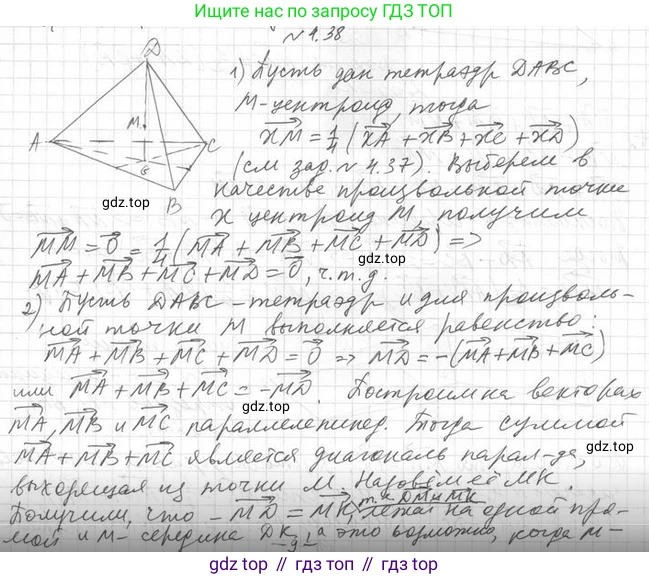 Ищите по запросу ГДЗ ТОП
№ 4.38
D
1) Пусть дан тетраэдр DABC,
M-центроид, тогда
XM = 1/4 (XA + XB + XC + XD)
(см зад. № 4.37). Выберем в
качестве произвольной точки
X центроид M, получим
A
M
C
G
B
gdz.top
MM = 0 = 1/4 (MA + MB + MC + MD) =>
MA + MB + MC + MD = 0, ч.т.д.
gdz.top
2) Пусть DABC - тетраэдр и для произволь-
ной точки M выполняется равенство:
MA + MB + MC + MD = 0 => MD = -(MA + MB + MC)
или MA + MB + MC = -MD. Построим на векторах
gdz.top
MA, MB и MC параллелепипед. Тогда суммой
MA + MB + MC является диагональ парал-да,
gdz.top
выходящая из точки M. Назовём её MK.
Получили, что -MD = MK, т.к DM и MK лежат на одной пря-
gdz.top
мой и M- середина DK, а это возможно, когда M-
- 9 -
gdz.top
gdz.top